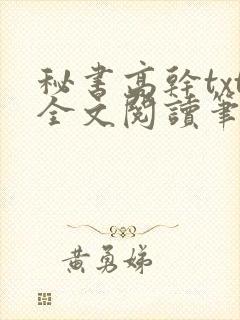 秘書高幹txt
全文閱讀筆
黃勇娣